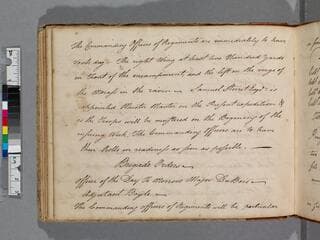 The Commanding Officers of Regiments are immediately to have
each day. The right Wing at least two Hundred yards
in Front of the encampment and the left on the verge of
the Morass in the rear — Samuel Street Esqr. is
appointed Muster Master on the Present expedition &
as the Troops will be mustered on the Beginning of the
ensuing Week. The Commanding Officers are to have
their Rolls in readiness as soon as possible. —
Brigade Orders
Officer of the Day To Morrow Major
Adjutant
The Commanding officers of Regiments will be particular